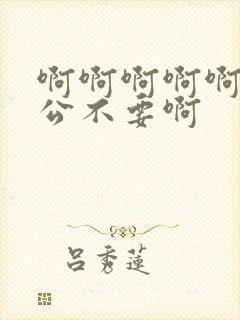 啊啊啊啊啊
公不要啊
吕秀莲